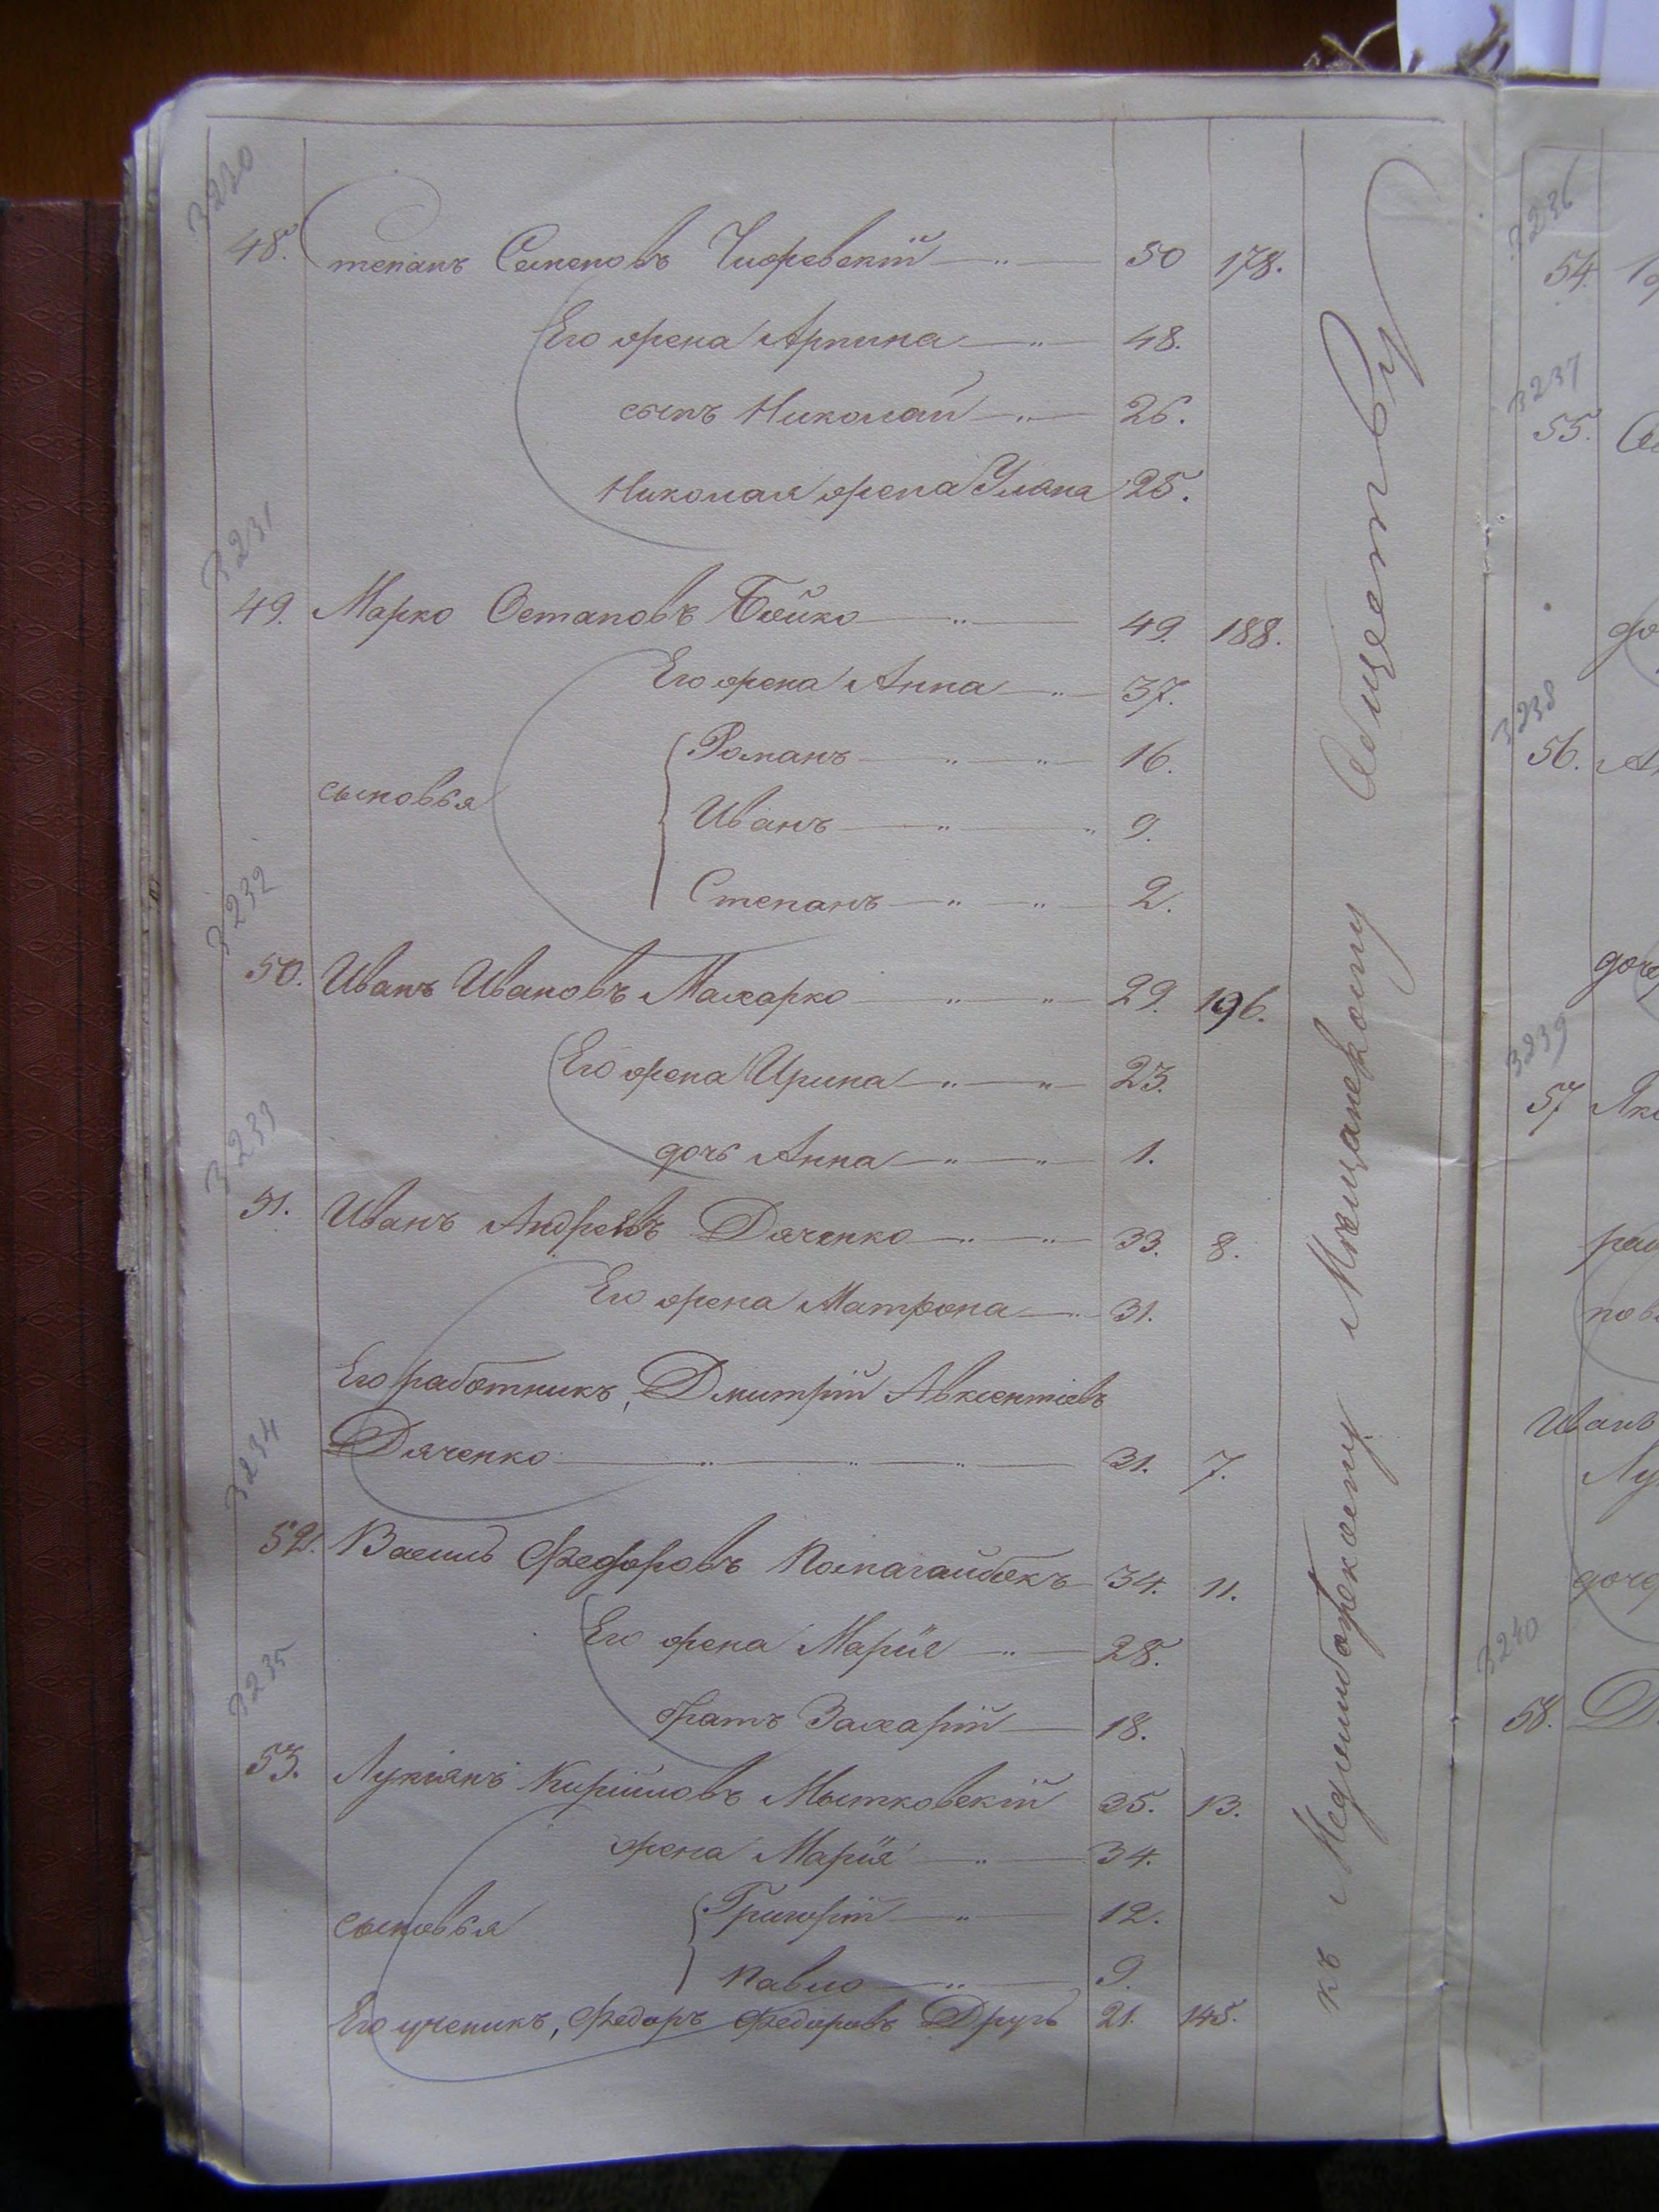 3230
48. Степанъ Семеновъ Чижевскій 50 178.
Его жена Арпина 48.
сынъ Николай 26.
Николая жена Уляна 25.
3231
49. Марко Остаповъ Бойко 49. 188.
Его жена Анна 37.
Романъ 16.
сыновья Иванъ 9.
Степанъ 2.
3232
50. Иванъ Ивановъ Махарко 29. 196.
Его жена Ирина 23.
дочь Анна 1.
3233
51. Иванъ Андреевъ Дяченко 33. 8.
Его жена Матрона 31.
Его работникъ, Дмитрій Авксентіевъ
Дяченко 31. 7.
3234
52. Василь Федоровъ Помагайбокъ 34. 11.
Его жена Марія 28.
братъ Захарій 18.
3235
53. Лукіянъ Кириловъ Мытковскій 35. 13.
жена Марія 34.
сыновья Григорій 12.
Павло 9.
Его ученикъ, Федоръ Федоровъ Другъ 21. 145.
къ Меджибожскому Мѣщанскому Обществу
3236
54.
3237
55.
до
3238
56.
доче
3239
57 Яко
Иванъ
Лу
доче
3240
58. Д